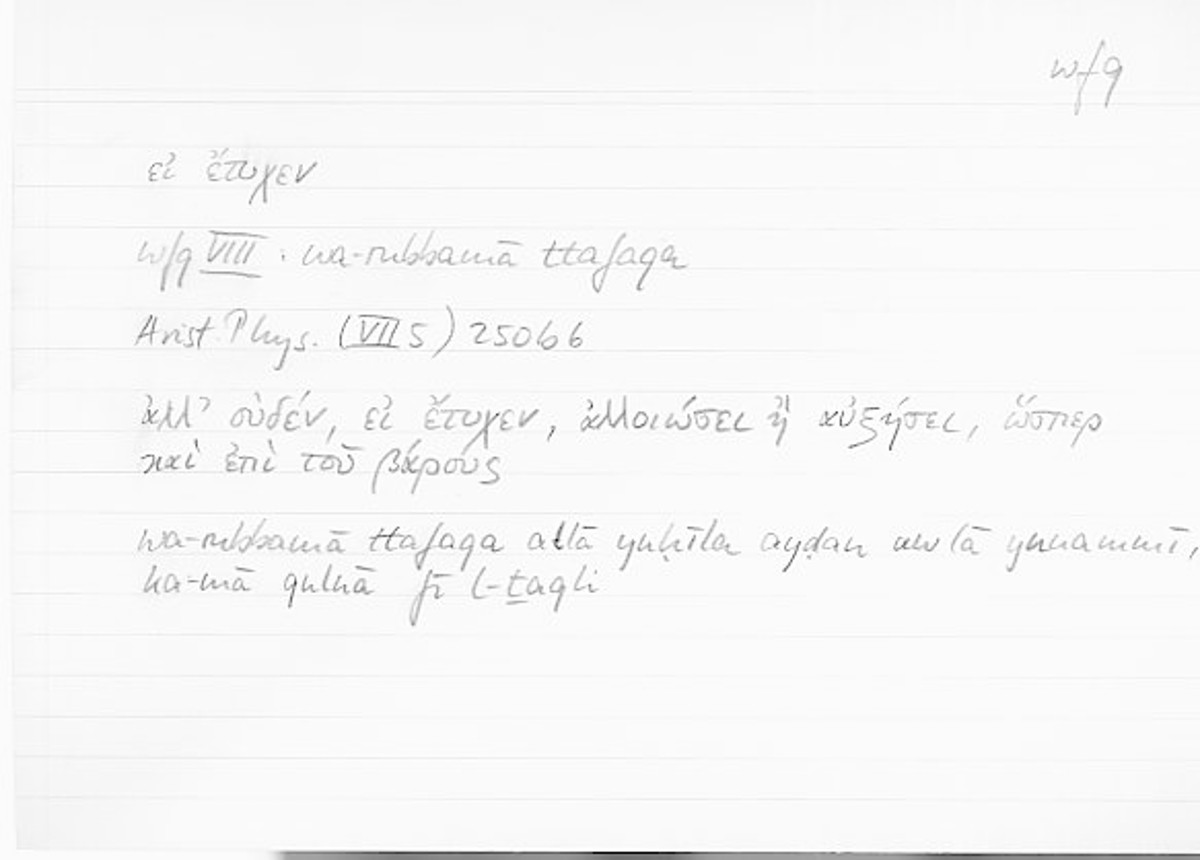 wfq
εἰ ἔτυχεν
wfq VIII : wa-rubbamā ttafaqa
Arist. Phys. (VII 5) 250b6
ἀλλ᾽ οὐδέν, εἰ ἔτυχεν, ἀλλοιώσει ἢ αὐξήσει, ὥσπερ
καὶ ἐπὶ τοῦ βάρους
wa-rubbamā ttafaqa allā yuḥīla ayḍan wa-lā yunammī,
ka-mā qulnā fī l-ṯaqli